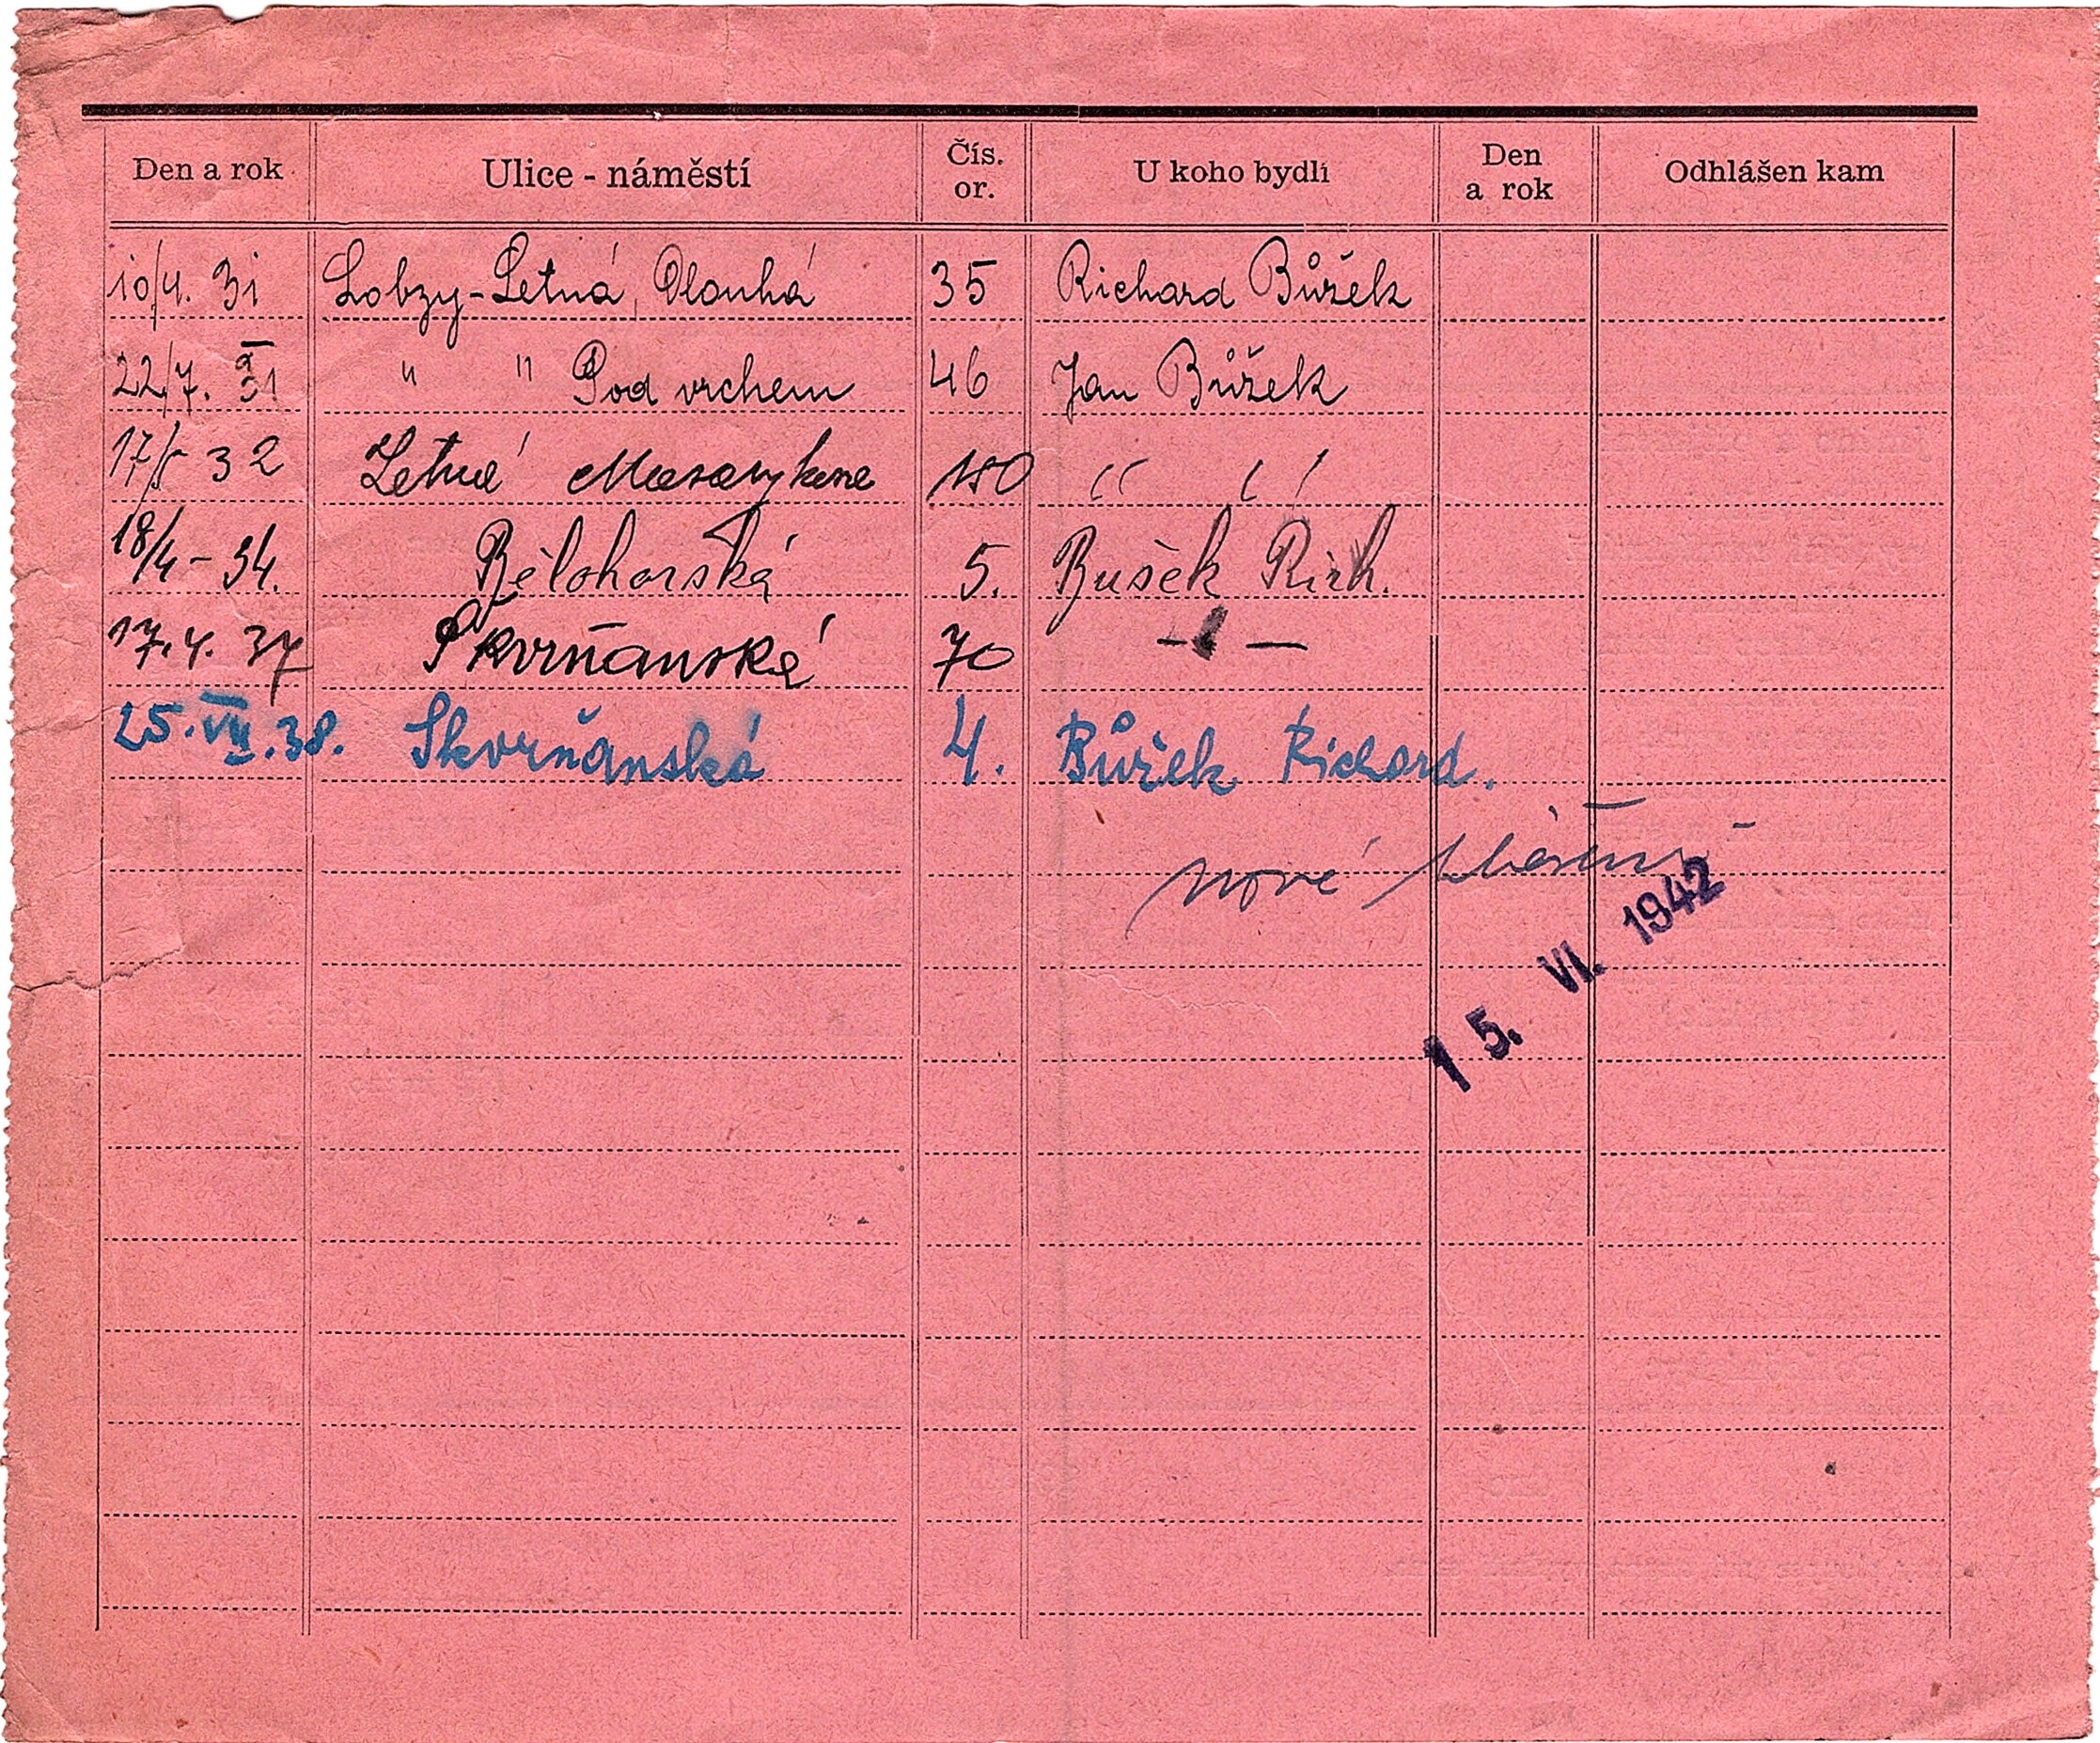 Den a rok Ulice - náměstí Čís. or. U koho bydlí Den a rok Odhlášen kam
10/4. 31 Lobzy-Letná, Dlouhá 35 Richard Bůžek
22/7. 31 " " Pod vrchem 46 Jan Bůžek
17/5 32 Letná Masarykova 180 " "
18/4 - 34. Bělohorská 5. Bušek Rich.
17.4. 37 Skvrňanská 70 - " -
25. VII. 38. Skvrňanská 4. Bůžek Richard.
nové
15. VI. 1942